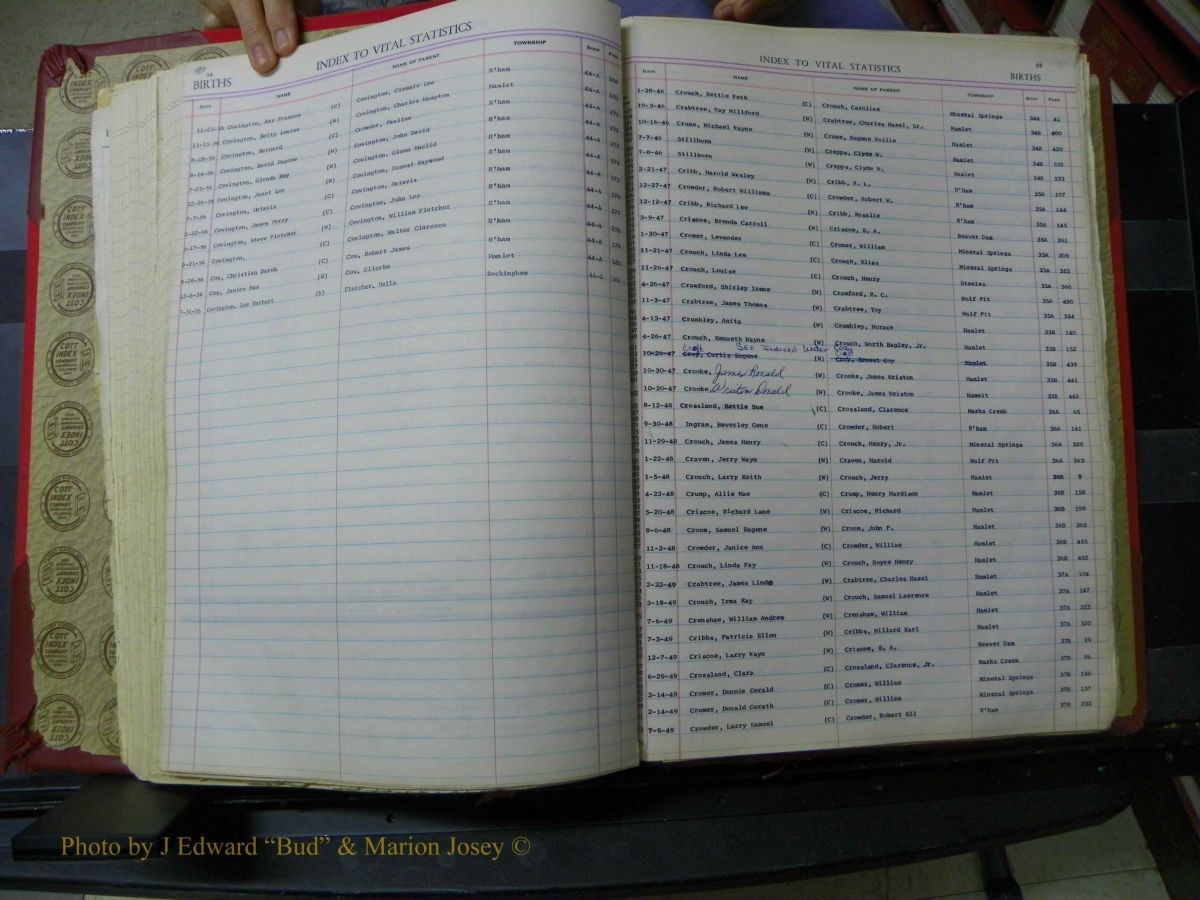 54
BIRTHS
INDEX TO VITAL STATISTICS
DATE NAME NAME OF PARENT TOWNSHIP BOOK PAGE
11-23-56 Covington, Kay Frances (C) Covington, Clemmie Lee R'ham 44-A
11-11-56 Covington, Betty Louise (W) Covington, Charles Hampton Hamlet 44-A
8-18-56 Covington, Bernard (C) Crowder, Pauline R'ham 44-A
8-14-56 Covington, David Eugene (W) Covington, John David R'ham 44-A
7-23-56 Covington, Glenda Kay (W) Covington, Glenn Euclid R'ham 44-A
12-26-56 Covington, Janet Lee (W) Covington, Ernest Raymond R'ham 44-A
7-7-56 Covington, Octavis (C) Covington, Octavis R'ham 44-A
2-22-56 Covington, James Perry (C) Covington, John Lee R'ham 44-A
3-17-56 Covington, Steve Fletcher (W) Covington, William Fletcher R'ham 44-A
9-21-56 Covington, (C) Covington, Walter Clarence R'ham 44-A
9-28-56 Cox, Christian Derek (C) Cox, Robert James Hamlet 44-A
12-6-56 Cox, Janice Sue (W) Cox, Ellerbe Rockingham 44-A
7-31-56 Covington, Lee Herbert Fletcher, Della
INDEX TO VITAL STATISTICS
55
BIRTHS
DATE NAME NAME OF PARENT TOWNSHIP BOOK PAGE
1-28-46 Crouch, Bettie Fath (C) Crouch, Caroline Mineral Springs 34A 41
10-3-46 Crabtree, Fay Millford (W) Crabtree, Charles Hazel, Sr. Hamlet 34B 400
10-16-46 Cruse, Michael Wayne (W) Cruse, Eugene Hollie Hamlet 34B 420
7-7-46 Stillborn (W) Crepps, Clyde W. Hamlet 34B 532
7-8-46 Stillborn (W) Crepps, Clyde W. Hamlet 34B 533
2-21-47 Cribb, Harold Wesley (W) Cribb, R. L. R'ham 35A 107
12-27-47 Crowder, Robert Williams (C) Crowder, Robert W. R'ham 35A 144
12-12-47 Cribb, Richard Lee (W) Cribb, Rosalie R'ham 35A 145
3-9-47 Criscoe, Brenda Carroll (W) Criscoe, E. A. Beaver Dam 35A 261
1-30-47 Cromer, Levander (C) Cromer, William Mineral Springs 35A 309
11-21-47 Crouch, Linda Lee (C) Crouch, Elias Mineral Springs 35A 353
11-26-47 Crouch, Louise (C) Crouch, Henry Steeles 35A 360
4-26-47 Crawford, Shirley Irene (W) Crawford, R. C. Wolf Pit 35A 450
11-3-47 Crabtree, James Thomas (W) Crabtree, Toy Wolf Pit 35A 524
4-13-47 Crumbley, Anita (W) Crumbley, Horace Hamlet 35B 140
4-26-47 Crouch, Kenneth Wayne (W) Crouch, Worth Bagley, Jr. Hamlet 35B 152
SEE Indexed Under Croft
10-20-47 Curtis Eugene (W) Ernest Coy Hamlet 35B 439
10-30-47 Crooke, James Ronald (W) Crooke, James Wriston Hamlet 35B 441
10-30-47 Crooke, Wriston Donald (W) Crooke, James Wriston Hamelt 35B 442
8-12-48 Crossland, Bettie Sue (C) Crossland, Clarence Marks Creek 36A 65
9-30-48 Ingram, Beverley Gene (C) Crowder, Robert R'ham 36A 141
11-29-48 Crouch, James Henry (C) Crouch, Henry, Jr. Mineral Springs 36A 320
1-22-48 Craven, Jerry Wayn (W) Craven, Harold Wolf Pit 36A 363
1-5-48 Crouch, Larry Keith (W) Crouch, Jerry Hamlet 36B 9
4-22-48 Crump, Allie Mae (C) Crump, Henry Hardison Hamlet 36B 158
5-20-48 Criscoe, Richard Lane (W) Criscoe, Richard Hamlet 36B 198
9-6-48 Croom, Samuel Eugene (W) Croom, John P. Hamlet 36B 362
11-2-48 Crowder, Janice Ann (C) Crowder, William Hamlet 36B 455
11-18-48 Crouch, Linda Fay (W) Crouch, Boyce Henry Hamlet 36B 492
2-22-49 Crabtree, James Linde (W) Crabtree, Charles Hazel Hamlet 37A 104
3-18-49 Crouch, Irma Kay (W) Crouch, Samuel Lawrence Hamlet 37A 147
7-6-49 Crenshaw, William Andrew (W) Crenshaw, William Hamlet 37A 323
7-3-49 Cribbs, Patricia Ellen (W) Cribbs, Millard Earl Hamlet 37A 330
12-7-49 Criscoe, Larry Wayn (W) Criscoe, E. A. Beaver Dam 37B 25
6-29-49 Crossland, Clara (C) Crossland, Clarence, Jr. Marks Creek 37B 96
2-14-49 Cromer, Donnie Gerald (C) Cromer, William Mineral Springs 37B 156
2-14-49 Cromer, Donald Gerath (C) Cromer, William Mineral Springs 37B 157
7-9-49 Crowder, Larry Samuel (C) Crowder, Robert Ell R'ham 37B 232
COTT INDEX COMPANY
Photo by J Edward "Bud" & Marion Josey ©